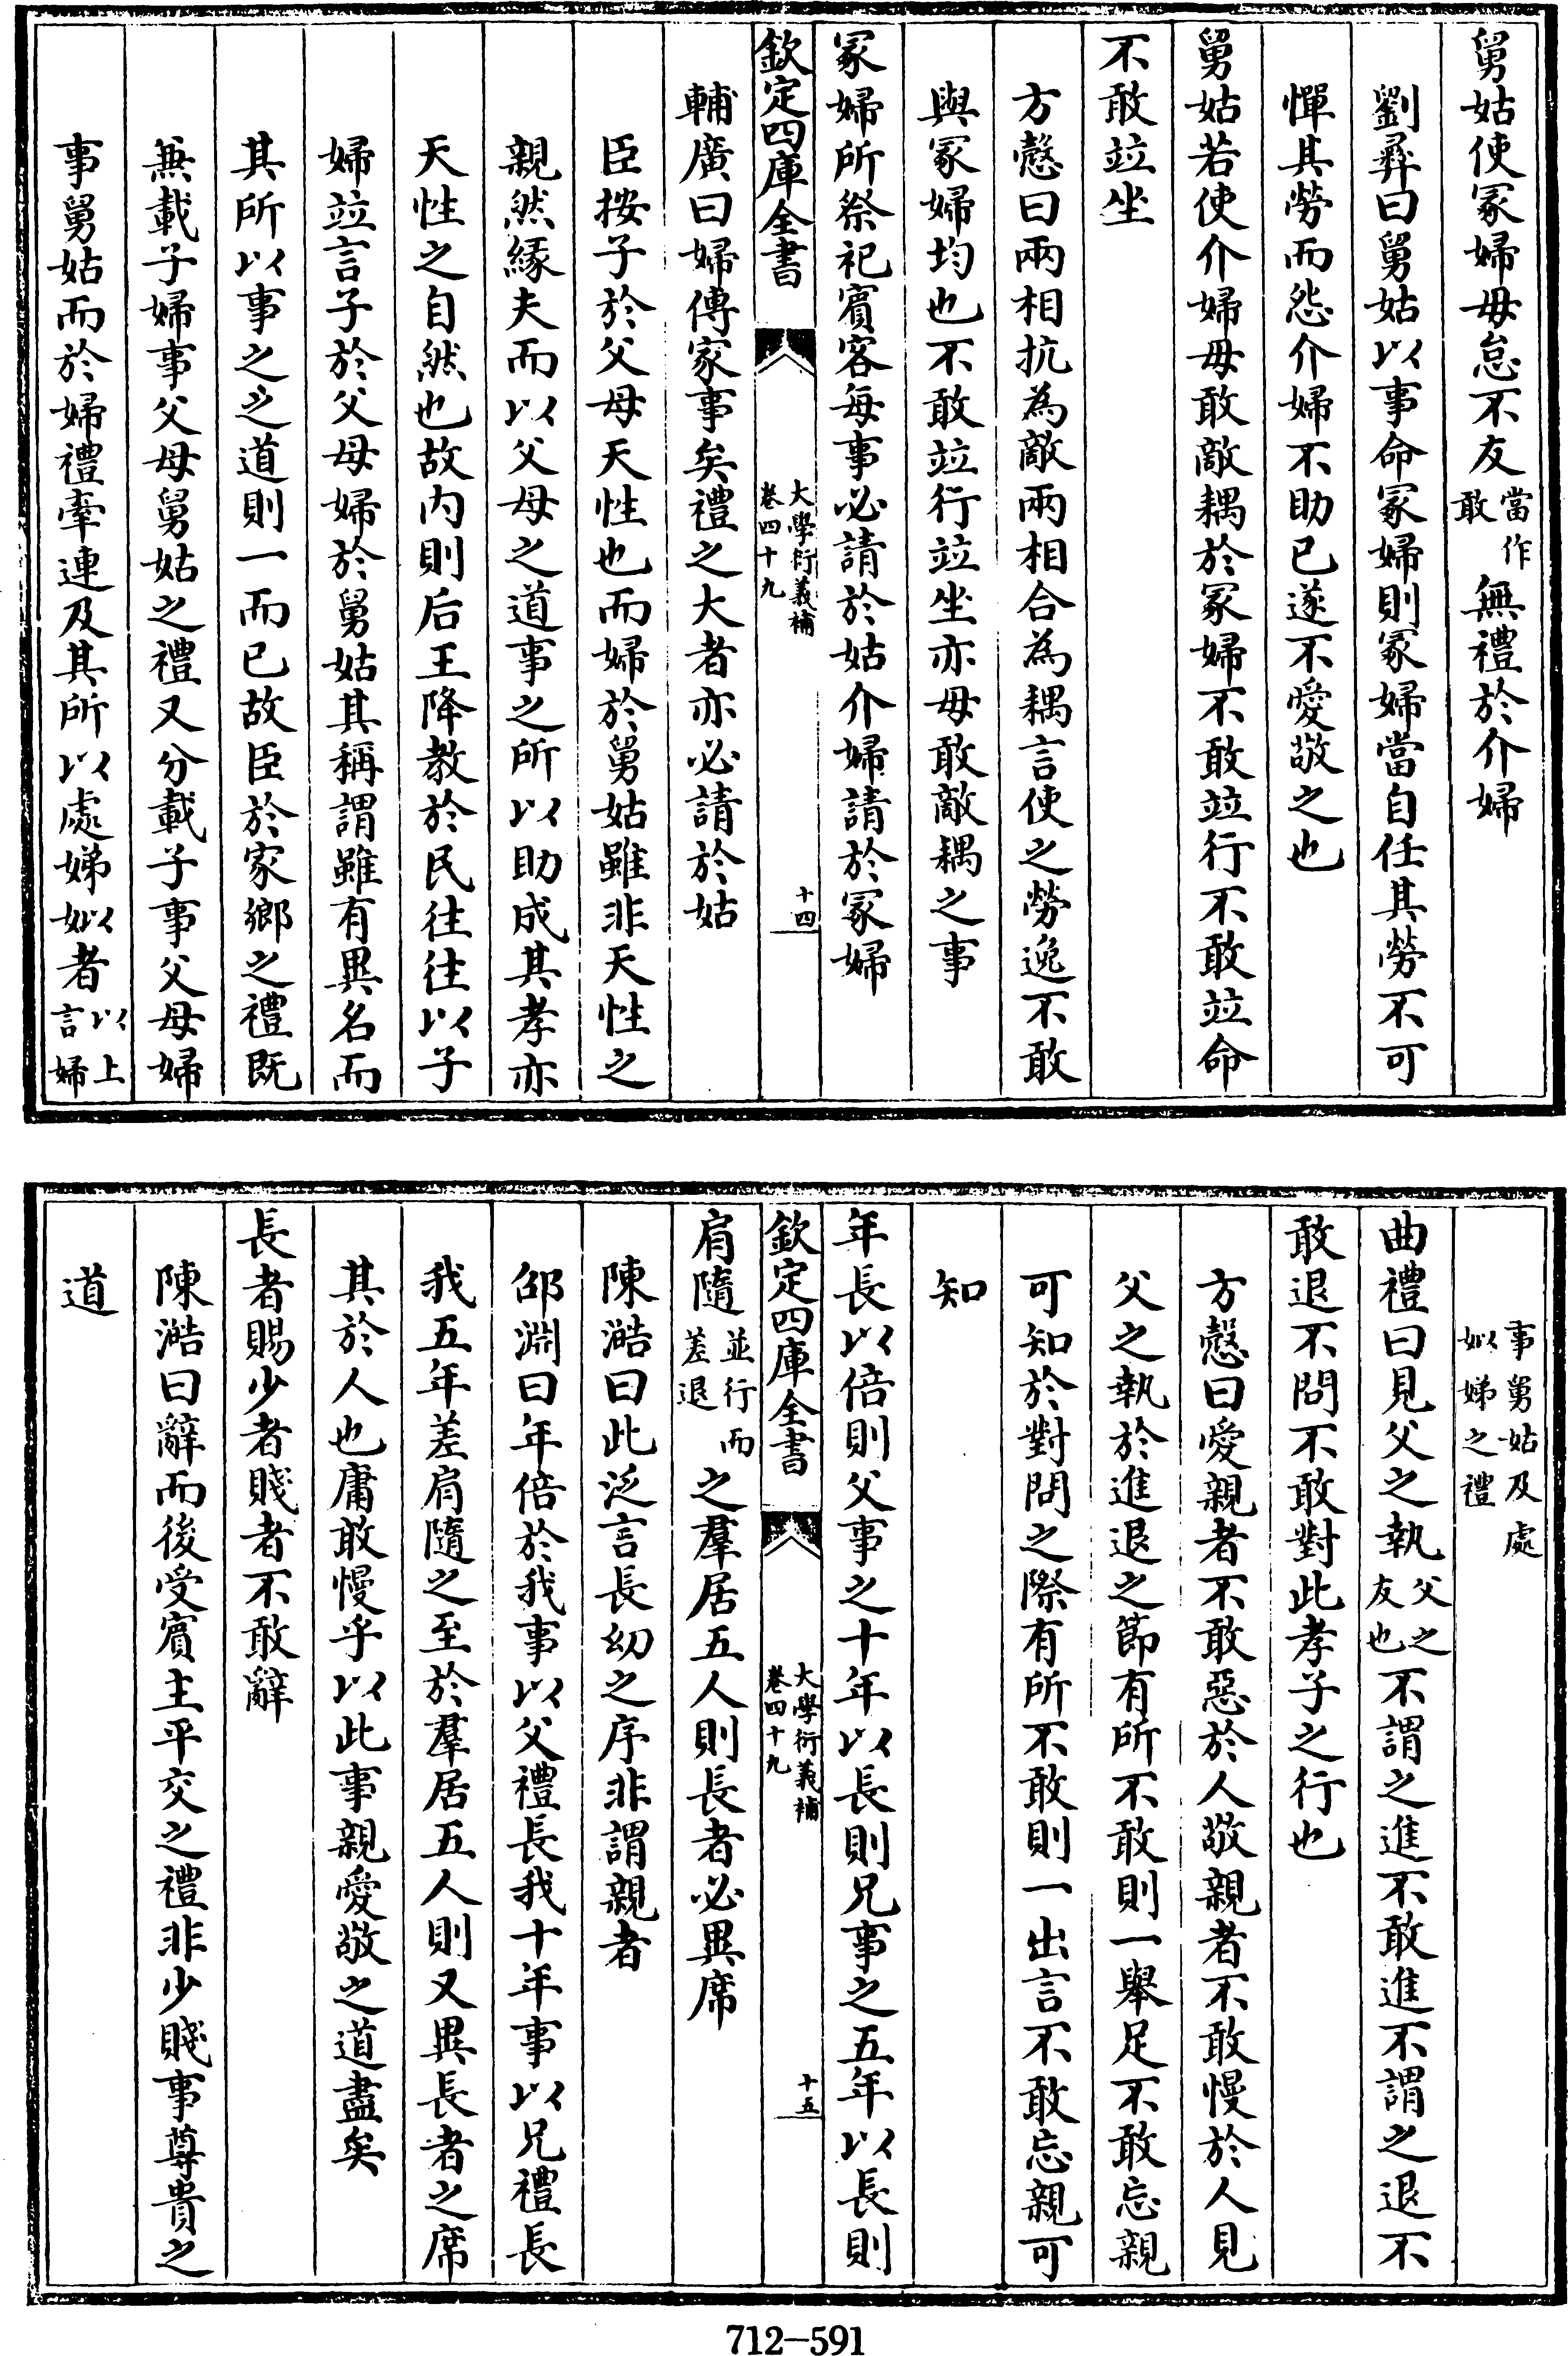 舅姑使冢婦毋怠不友當作敢無禮於介婦
劉彞曰舅姑以事命冢婦則冢婦當自任其勞不可
憚其勞而怨介婦不助已遂不愛敬之也
舅姑若使介婦毋敢敵耦於冢婦不敢竝行不敢竝命
不敢竝坐
方慤曰兩相抗為敵兩相合為耦言使之勞逸不敢
與冢婦均也不敢竝行竝坐亦毋敢敵耦之事
冢婦所祭祀賓客每事必請於姑介婦請於冢婦
欽定四庫全書 大學衍義補卷四十九 十四
輔廣曰婦傳家事矣禮之大者亦必請於姑
臣按子於父母天性也而婦於舅姑雖非天性之
親然緣夫而以父母之道事之所以助成其孝亦
天性之自然也故内則后王降教於民往往以子
婦竝言子於父母婦於舅姑其稱謂雖有異名而
其所以事之之道則一而已故臣於家鄉之禮既
無載子婦事父母舅姑之禮又分載子事父母婦
事舅姑而於婦禮牽連及其所以處娣姒者以上言婦
事舅姑及處姒娣之禮
曲禮曰見父之執父之友也不謂之進不敢進不謂之退不
敢退不問不敢對此孝子之行也
方慤曰愛親者不敢惡於人敬親者不敢慢於人見
父之執於進退之節有所不敢則一舉足不敢忘親
可知於對問之際有所不敢則一出言不敢忘親可
知
年長以倍則父事之十年以長則兄事之五年以長則
欽定四庫全書 大學衍義補卷四十九 十五
肩隨並行而差退之羣居五人則長者必異席
陳澔曰此泛言長幼之序非謂親者
邵淵曰年倍於我事以父禮長我十年事以兄禮長
我五年差肩隨之至於羣居五人則又異長者之席
其於人也庸敢慢乎以此事親愛敬之道盡矣
長者賜少者賤者不敢辭
陳澔曰辭而後受賓主平交之禮非少賤事尊貴之
道
712-591